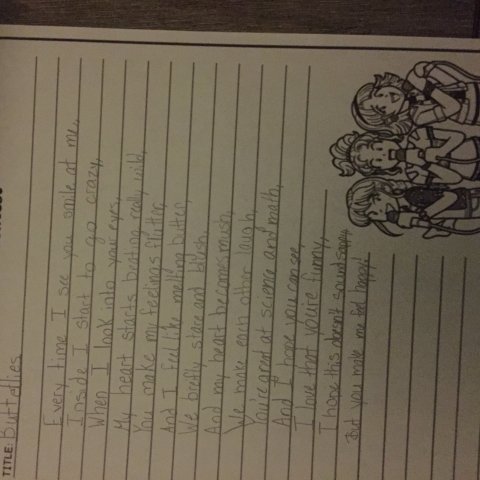 TITLE: Butterflies
Every time I see you smile at me,
Inside I start to go crazy,
When I look into your eyes,
My heart starts beating really wild,
You make my feelings flutter,
And I feel like melting butter,
We briefly stare and blush,
And my heart becomes mush,
We make each other laugh,
You're great at science and math,
And I hope you can see,
I love that you're funny,
I hope this doesn't sound sappy,
But you make me feel happy!